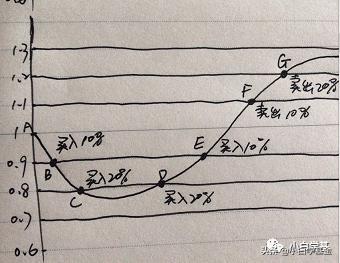 1.3
1.2
G
卖出20%
1.1
F
卖出10%
A
1
买入10%
E
买入10%
0.9
B
买入20%
D
0.8
C
买入20%
0.7
0.6
小白学基
头条@小白学基金